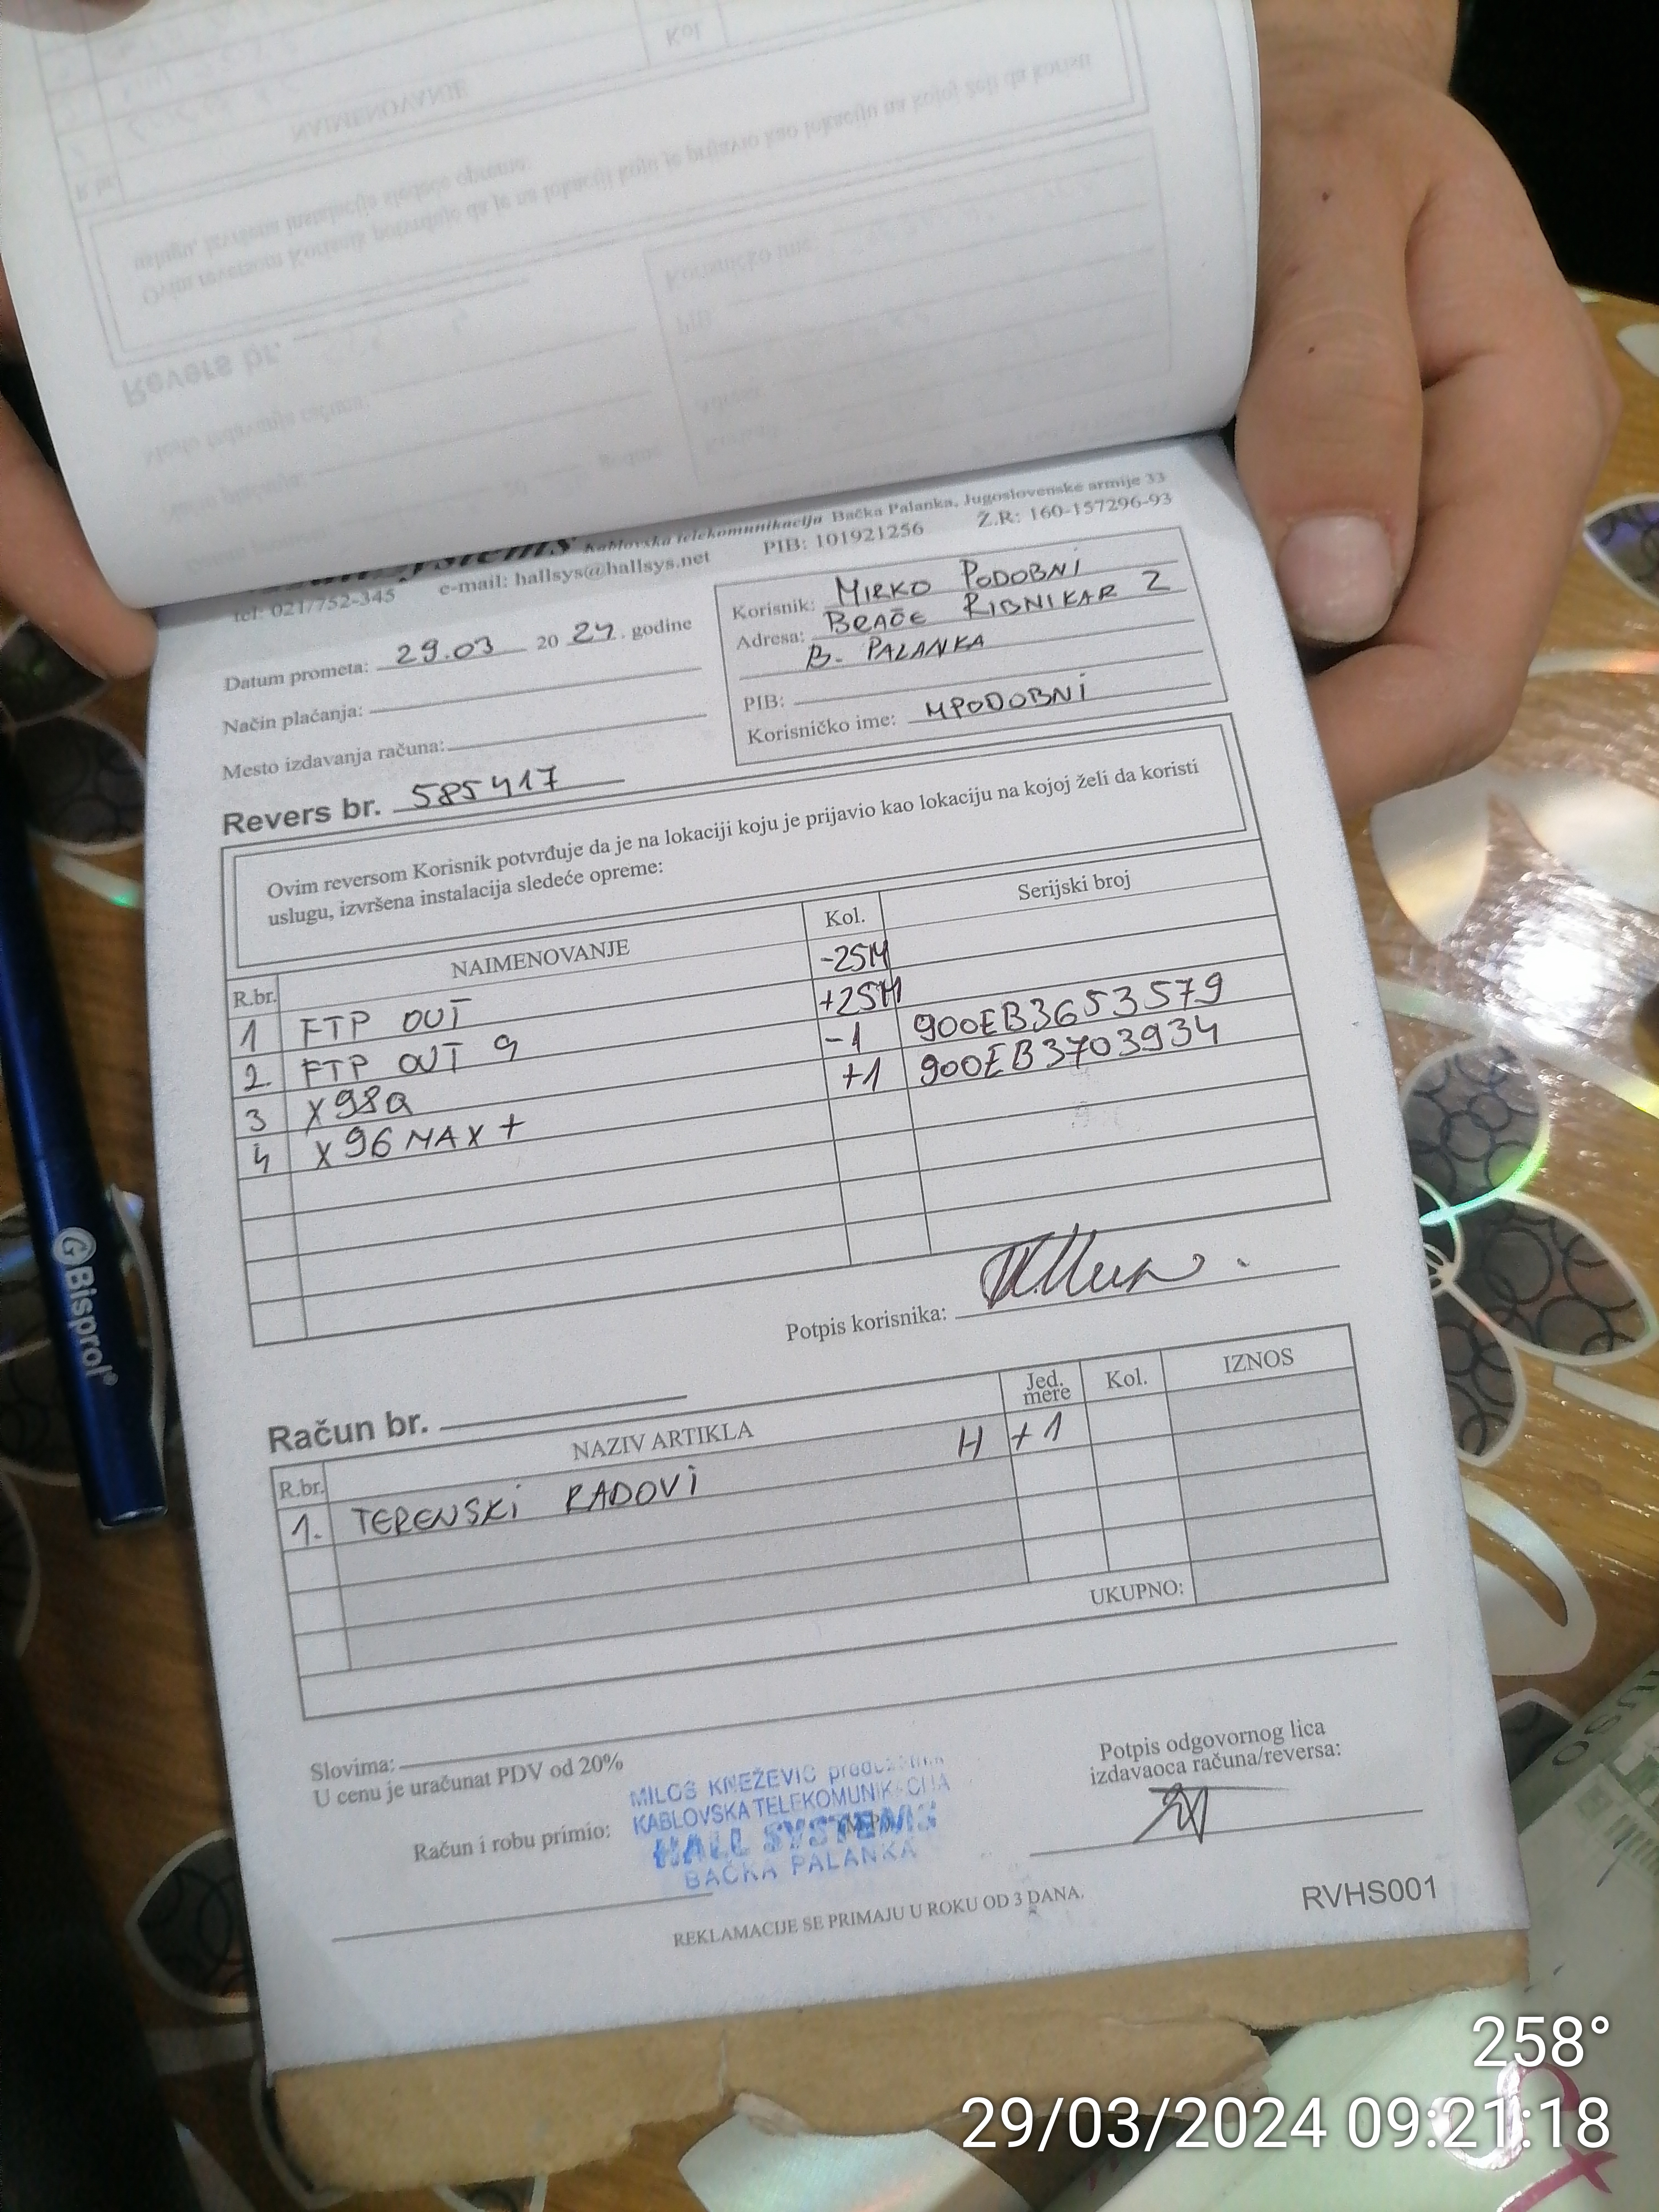 Kablovska telekomunikacija Bačka Palanka, Jugoslovenske armije 33
tel: 021/752-345 e-mail: hallsys@hallsys.net PIB: 101921256 Ž.R: 160-157296-93
Datum prometa: 29.03 20 24. godine
Način plaćanja:
Mesto izdavanja računa:
Korisnik: MIRKO PODOBNI
Adresa: BRAĆE RIBNIKAR 2
B. PALANKA
PIB:
Korisničko ime: MPODOBNI
Revers br. 585417
Ovim reversom Korisnik potvrđuje da je na lokaciji koju je prijavio kao lokaciju na kojoj želi da koristi
uslugu, izvršena instalacija sledeće opreme:
R.br. NAIMENOVANJE Kol. Serijski broj
1 FTP OUT -25M
2. FTP OUT 9 +25M
3 X98Q -1 900EB3653579
4 X96MAX+ +1 900EB3703934
Potpis korisnika:
Račun br.
R.br. NAZIV ARTIKLA Jed. mere Kol. IZNOS
1. TERENSKI RADOVI H +1
UKUPNO:
Slovima:
U cenu je uračunat PDV od 20%
Račun i robu primio:
MILOŠ KNEŽEVIĆ
KABLOVSKA TELEKOMUNIKACIJA
HALL SYSTEMS
BAČKA PALANKA
Potpis odgovornog lica
izdavaoca računa/reversa:
REKLAMACIJE SE PRIMAJU U ROKU OD 3 DANA.
RVHS001
Bisprol®
258°
29/03/2024 09:21:18